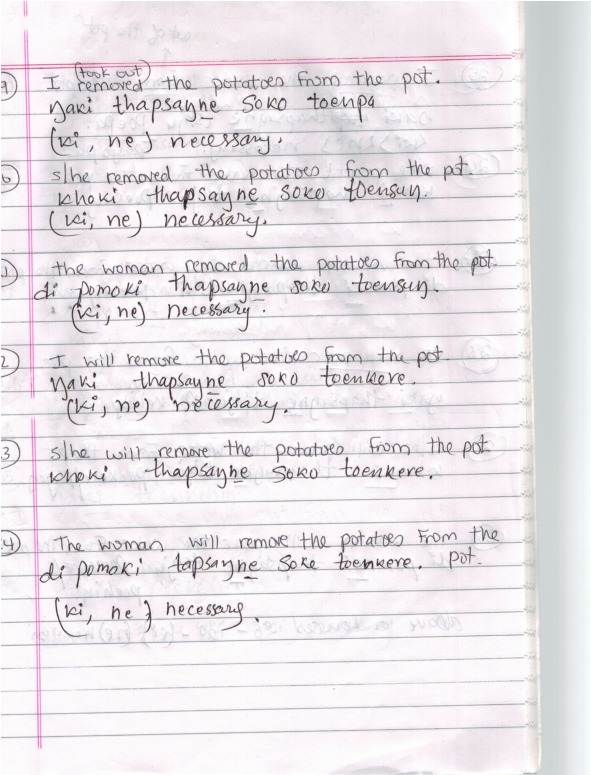 9) I (took out) removed the potatoes from the pot.
ŋaki thapsayne soko toenpa
(ki, ne) necessary.
0 s/he removed the potatoes from the pot.
khoki thapsayne soko toensuŋ.
(ki, ne) necessary.
1) the woman removed the potatoes from the pot.
di pomoki thapsayne soko toensuŋ.
(ki, ne) necessary.
2 I will remove the potatoes from the pot.
ŋaki thapsayne soko toenkere.
(ki, ne) necessary.
3) s/he will remove the potatoes from the pot
khoki thapsayne soko toenkere.
4) The woman will remove the potatoes from the
di pomoki tapsayne soke toenkere. pot.
(ki, ne) necessary.